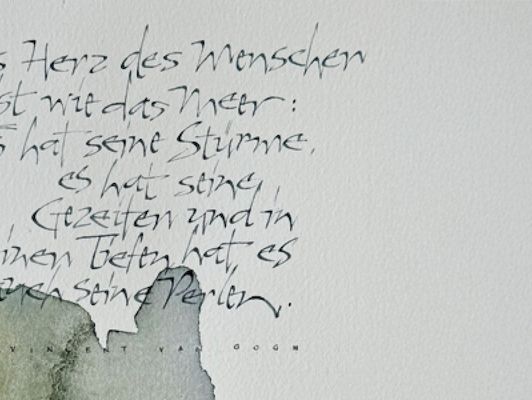 s Herz des Menschen
st wie das Meer:
s hat seine Stürme,
es hat seine
Gezeiten und in
inen Tiefen hat es
uch seine Perlen.
VINCENT VAN GOGH